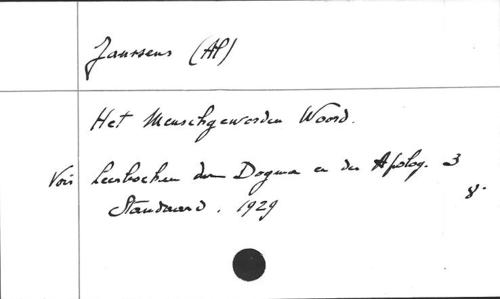 Janssens (Al)
Het Menschgeworden Woord.
Voir Leerboeken der Dogma en der Apolog. 3
Standaard. 1929 8.